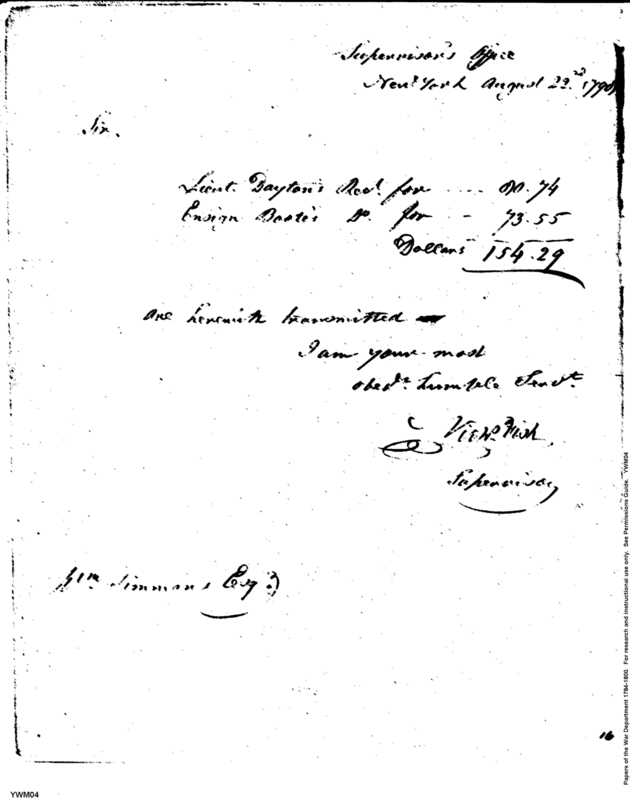 Supervisor's Office
New York August 22nd 179
Sir,
Lieut. Dayton's Rect. for ---- 80.74
Ensign Do. for - 73.55
Dollars 154.29
are herewith transmitted
I am your most
obedt. humble Servt.
Nichs. Fish,
Supervisor
Wm Simmons Esqr.
16
Papers of the War Department 1784-1800. For research and instructional use only. See Permissions Guide. YWM04
YWM04